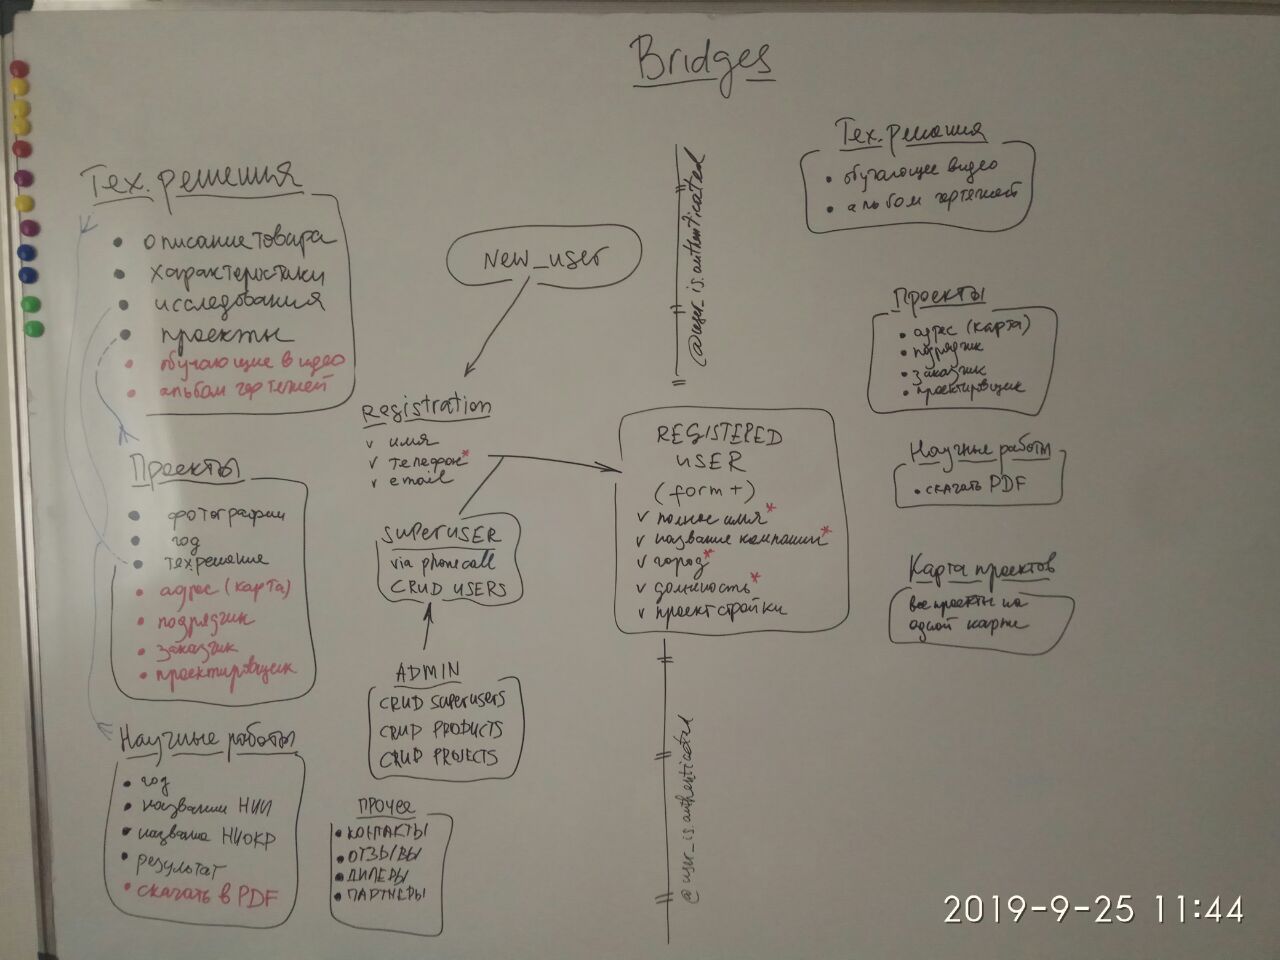 Bridges
Тех. решения
• описание товара
• характеристики
• исследования
• проекты
• обучающие видео
• альбом чертежей
Проекты
• фотографии
• год
• тех решение
• адрес (карта)
• подрядчик
• заказчик
• проектировщик
Научные работы
• год
• название НИИ
• название НИОКР
• результат
• скачать в PDF
New_user
Registration
v имя
v телефон*
v email
SUPERUSER
via phonecall
CRUD USERS
ADMIN
CRUD SUPERUSERS
CRUD PRODUCTS
CRUD PROJECTS
ПРОЧЕЕ
• КОНТАКТЫ
• ОТЗЫВЫ
• ДИЛЕРЫ
• ПАРТНЕРЫ
@user_is.authenticated
REGISTERED
USER
(form +)
v полное имя*
v название компании*
v город*
v должность*
v проект стройки
@user_is.authenticated
Тех. решения
• обучающее видео
• альбом чертежей
Проекты
• адрес (карта)
• подрядчик
• заказчик
• проектировщик
Научные работы
• скачать PDF
Карта проектов
все проекты на
одной карте
2019-9-25 11:44